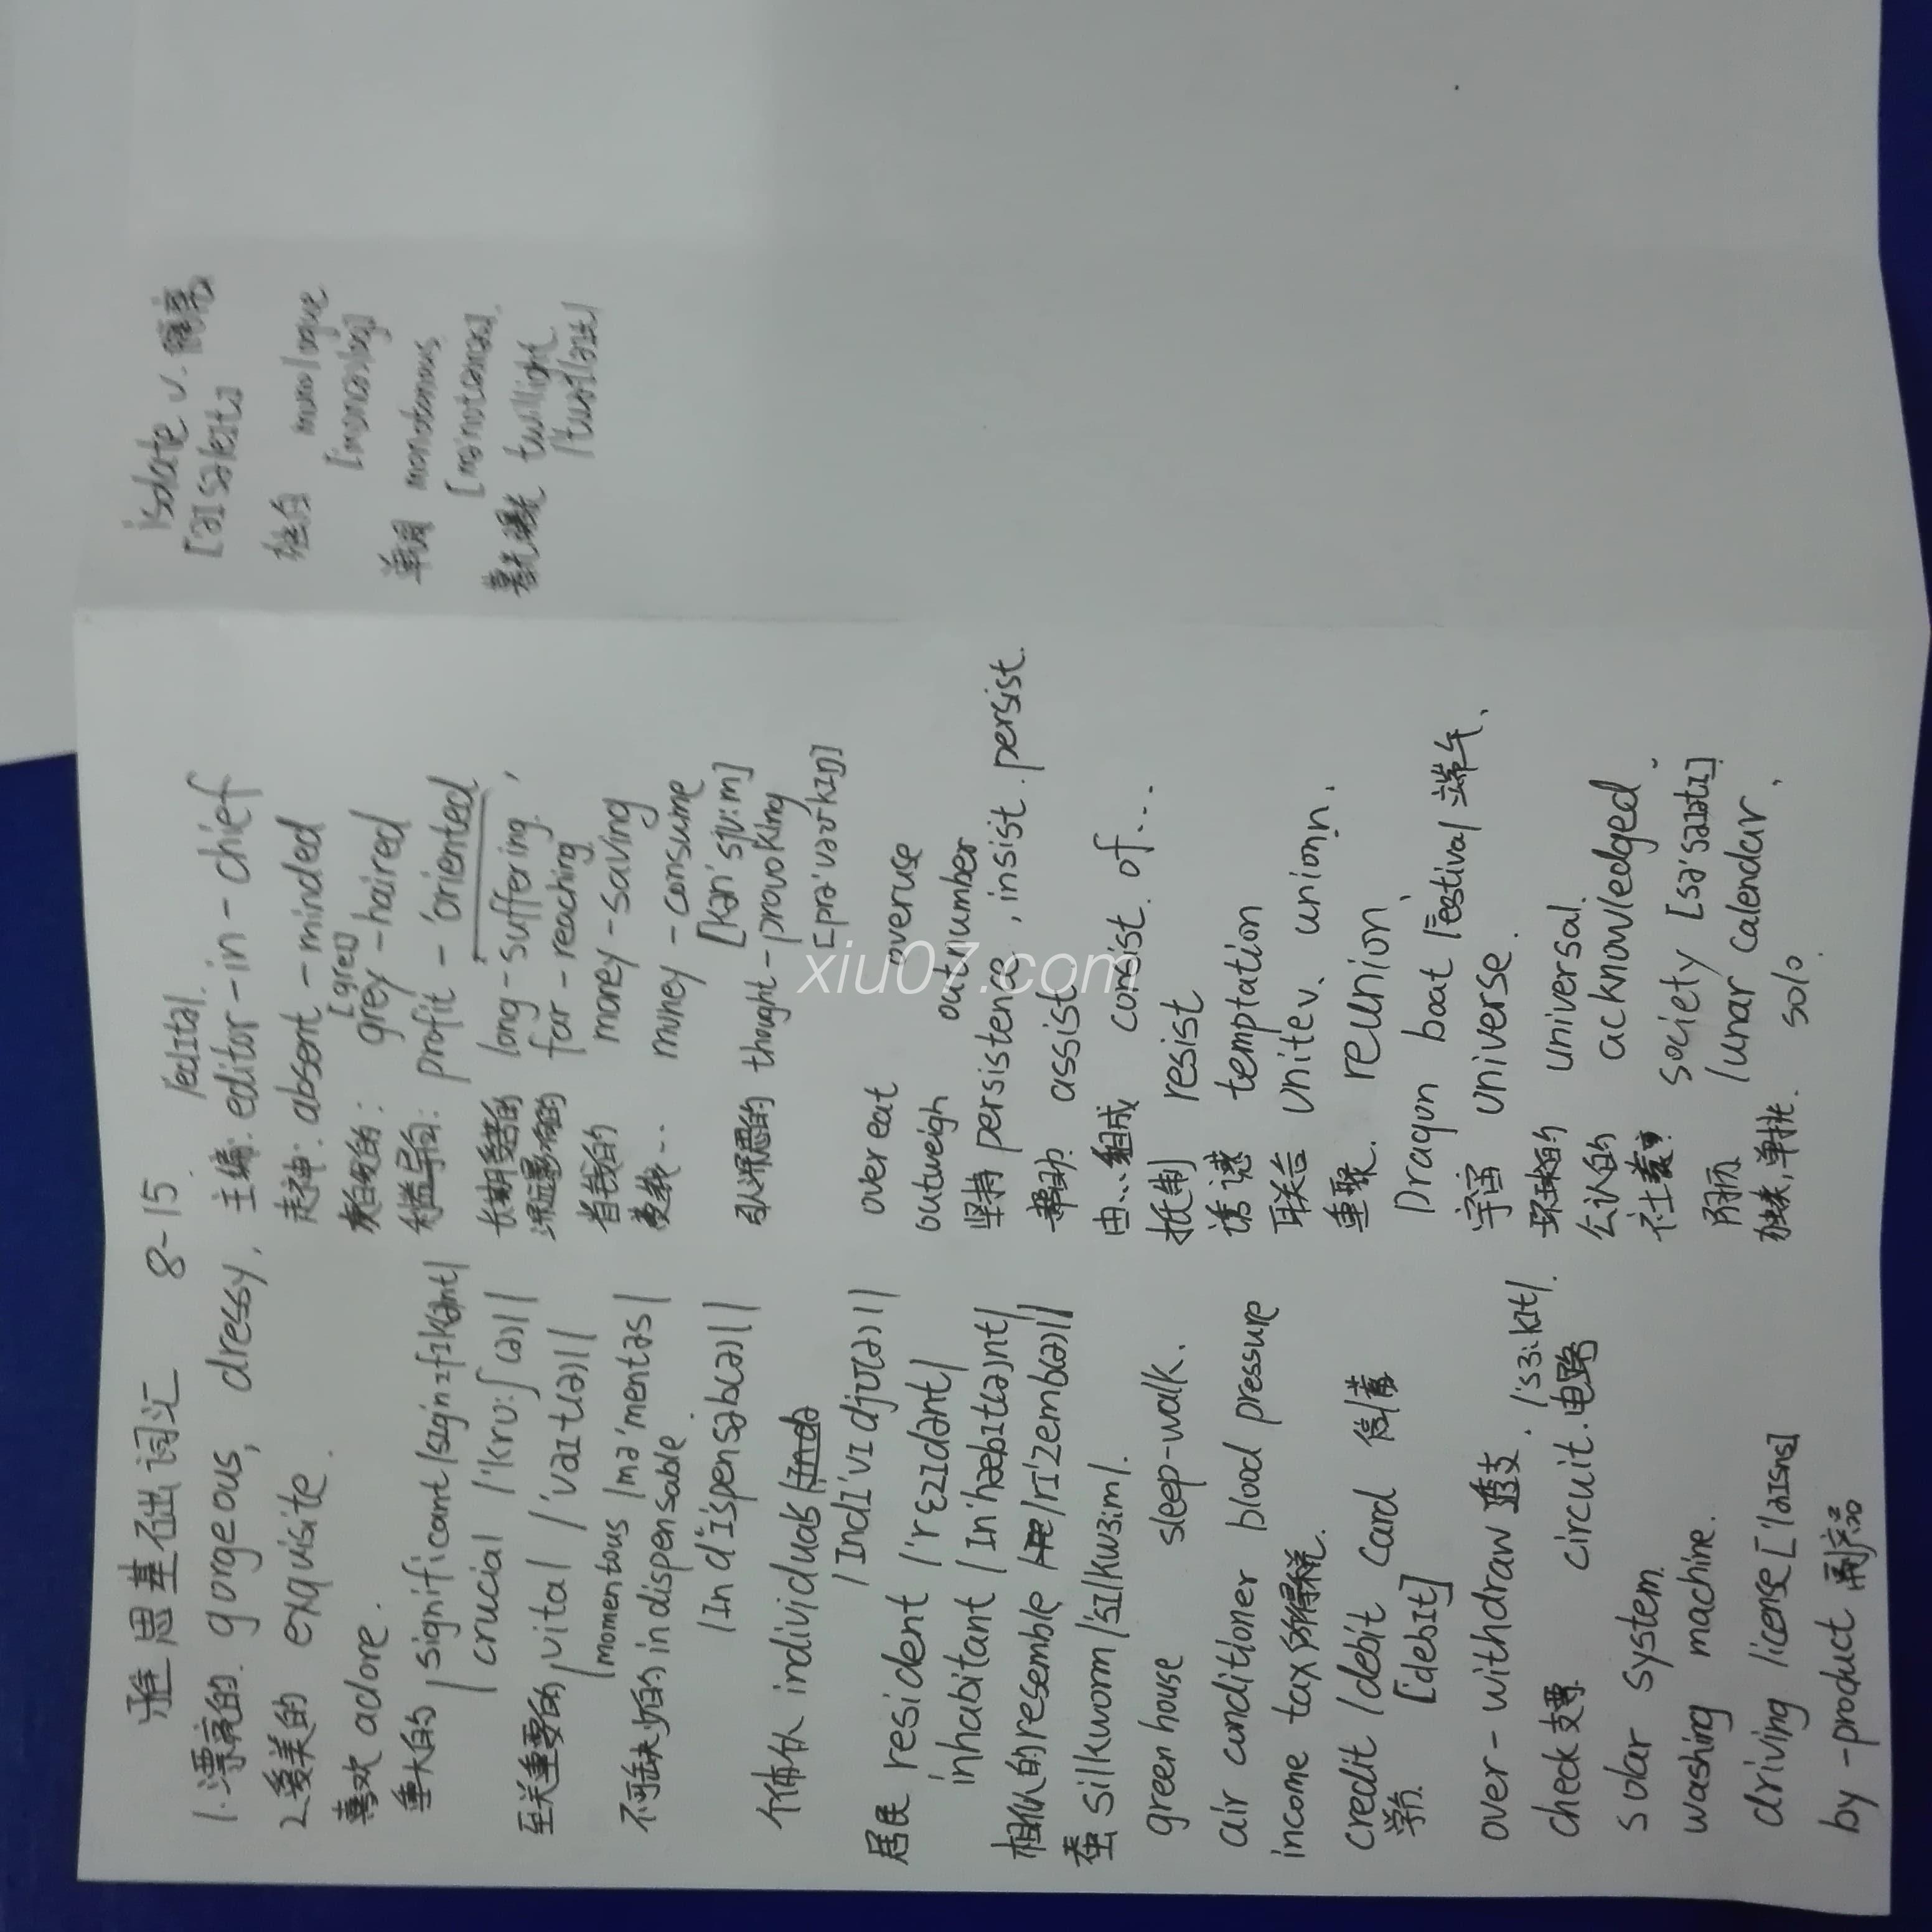 雅思基础词汇 8-15.
1.漂亮的. gorgeous, dressy,
2.美的 exquisite.
喜欢 adore.
重大的 significant
crucial /'kru:ʃ(ə)l/
至关重要的 vital /'vaɪt(ə)l/
momentous /mə'mentəs/
不可缺少的 indispensable.
/ɪndɪ'spensəb(ə)l/
个体 individual
/ɪndɪ'vɪdjʊ(ə)l/
居民 resident /'rɛzɪdənt/
inhabitant /ɪn'hæbɪt(ə)nt/
相似的 resemble /rɪ'zemb(ə)l/
蚕 silkworm /'sɪlkwɜ:m/.
green house sleep-walk.
air conditioner blood pressure
income tax 所得税.
credit /debit card 储蓄
学分. [debɪt]
over-withdraw 透支.
check 支票 circuit.电路 /'sɜ:kɪt/.
solar system.
washing machine.
driving license ['laɪsns]
by-product 副产品
/edɪtə/.
主编: editor-in-chief
走神: absent-minded
[greɪ]
灰白发的: grey-haired
利益导向: profit-'oriented
长期受苦的 long-suffering,
深远影响的 far-reaching
省钱的 money-saving
费钱... money-consume
[kən'sju:m]
引人深思的 thought-provoking
[prə'vəʊkɪŋ]
over eat overuse
outweigh outnumber
坚持 persistence, insist. persist.
帮助 assist
由...组成 consist. of...
抵制 resist
诱惑 temptation
联合 unite v、union.
重聚. reunion、
Dragon boat Festival 端午、
宇宙 universe.
环球的 universal.
公认的 acknowledged.
社 society [sə'saɪətɪ]
阴历 lunar calendar,
独奏,单挑. solo.
isolate v. 隔离
[aɪsəleɪt]
独白 monologue
[mɒnəlɒg]
单调 monotonous
[mənɒtənəs].
twilight
/twaɪlaɪt/
xiu07.com